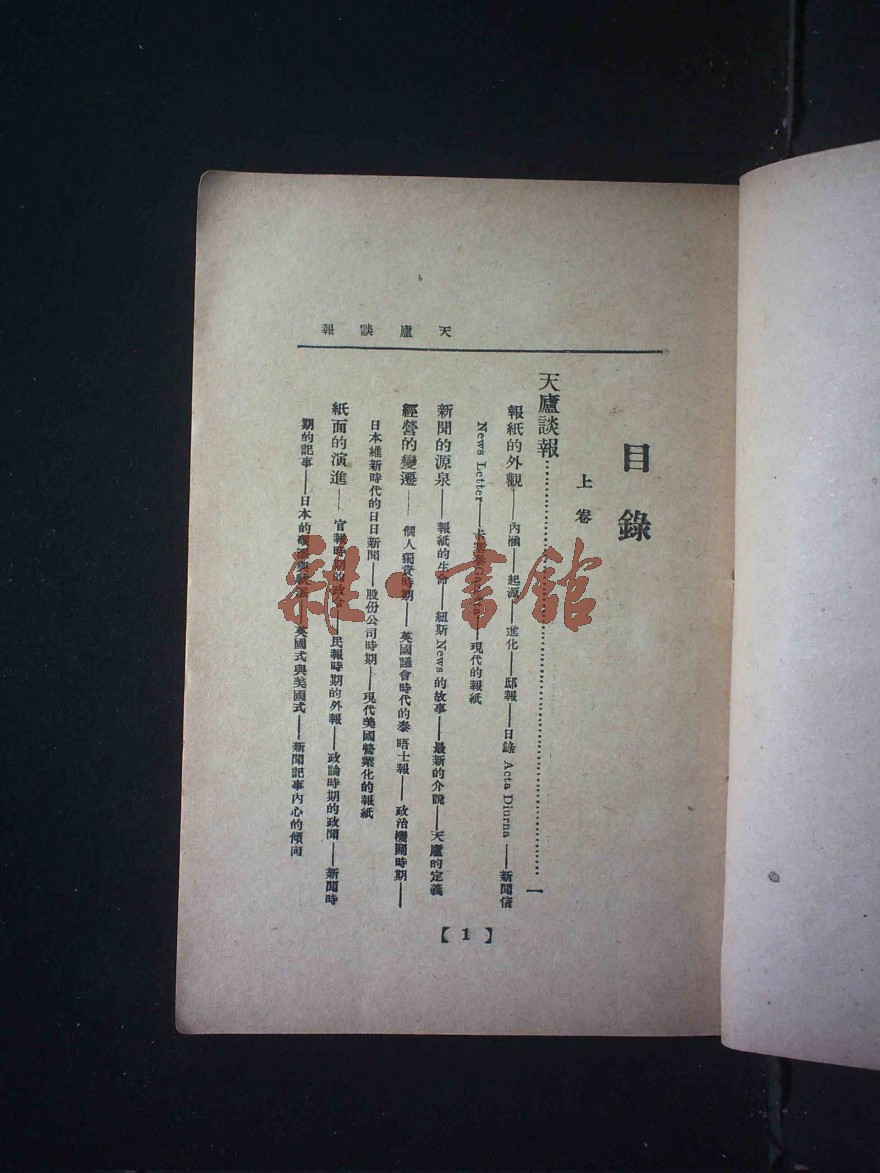 天廬談報
目錄
上卷
天廬談報……………………一
報紙的外觀——內涵——起源——進化——邸報——日錄 Acta Diurna——新聞信
News Letter——Gazetta——現代的報紙
新聞的源泉——報紙的生命——紐斯News的故事——最新的介說——天廬的定義
經營的變遷——個人獨資時期——英國議會時代的泰晤士報——政治機關時期——
日本維新時代的日日新聞——股份公司時期——現代美國營業化的報紙
紙面的演進——官報時期的政令——民報時期的外報——政論時期的政聞——新聞時
期的記事——日本的——英國式與美國式——新聞記事內心的傾向
【1】
雜·書館